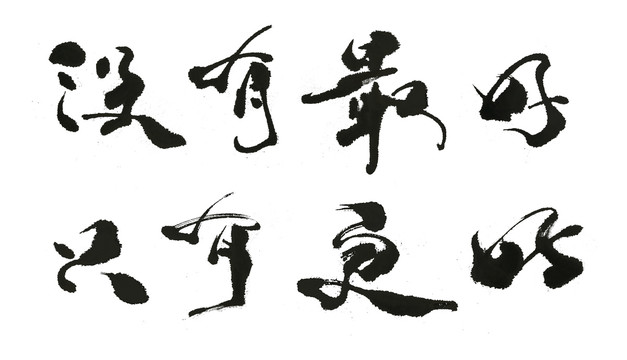 没有最好
只有更好